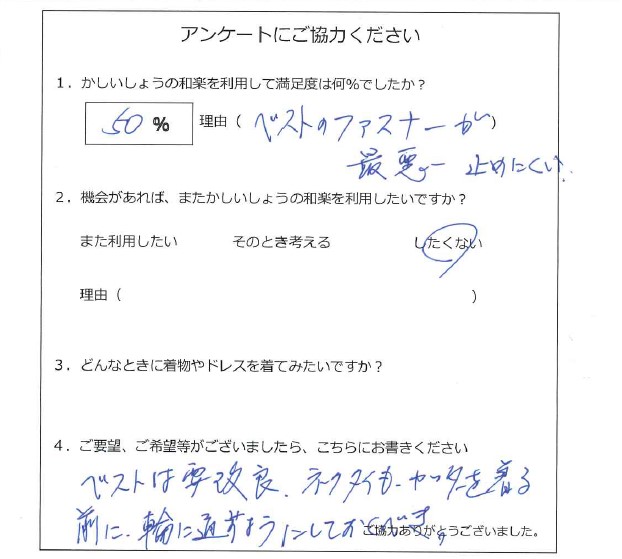 アンケートにご協力ください
1．かしいしょうの和楽を利用して満足度は何％でしたか？
50 ％ 理由（ ベストのファスナーが ）
最悪。 止めにくい.
2．機会があれば、またかしいしょうの和楽を利用したいですか？
また利用したい そのとき考える したくない
理由（ ）
3．どんなときに着物やドレスを着てみたいですか？
4．ご要望、ご希望等がございましたら、こちらにお書きください
ベストは要改良、ネクタイも、カッターを着る
前に、輪に通すようにしておくべき。
ご協力ありがとうございました。